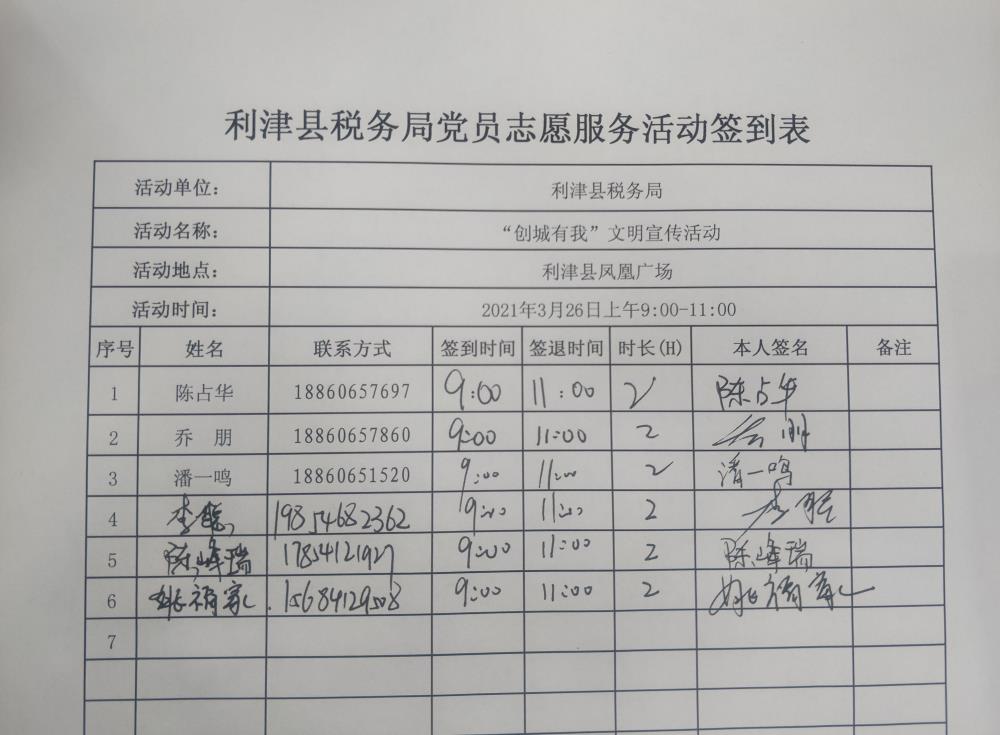 利津县税务局党员志愿服务活动签到表
活动单位： 利津县税务局
活动名称： “创城有我”文明宣传活动
活动地点： 利津县凤凰广场
活动时间： 2021年3月26日上午9:00-11:00
序号 姓名 联系方式 签到时间 签退时间 时长(H) 本人签名 备注
1 陈占华 18860657697 9:00 11:00 2 陈占华
2 乔 朋 18860657860 9:00 11:00 2 乔朋
3 潘一鸣 18860651520 9:00 11:00 2 潘一鸣
4 李聪 19854682362 9:00 11:00 2 李聪
5 陈峰瑞 17854121927 9:00 11:00 2 陈峰瑞
6 15684129508 9:00 11:00 2
7